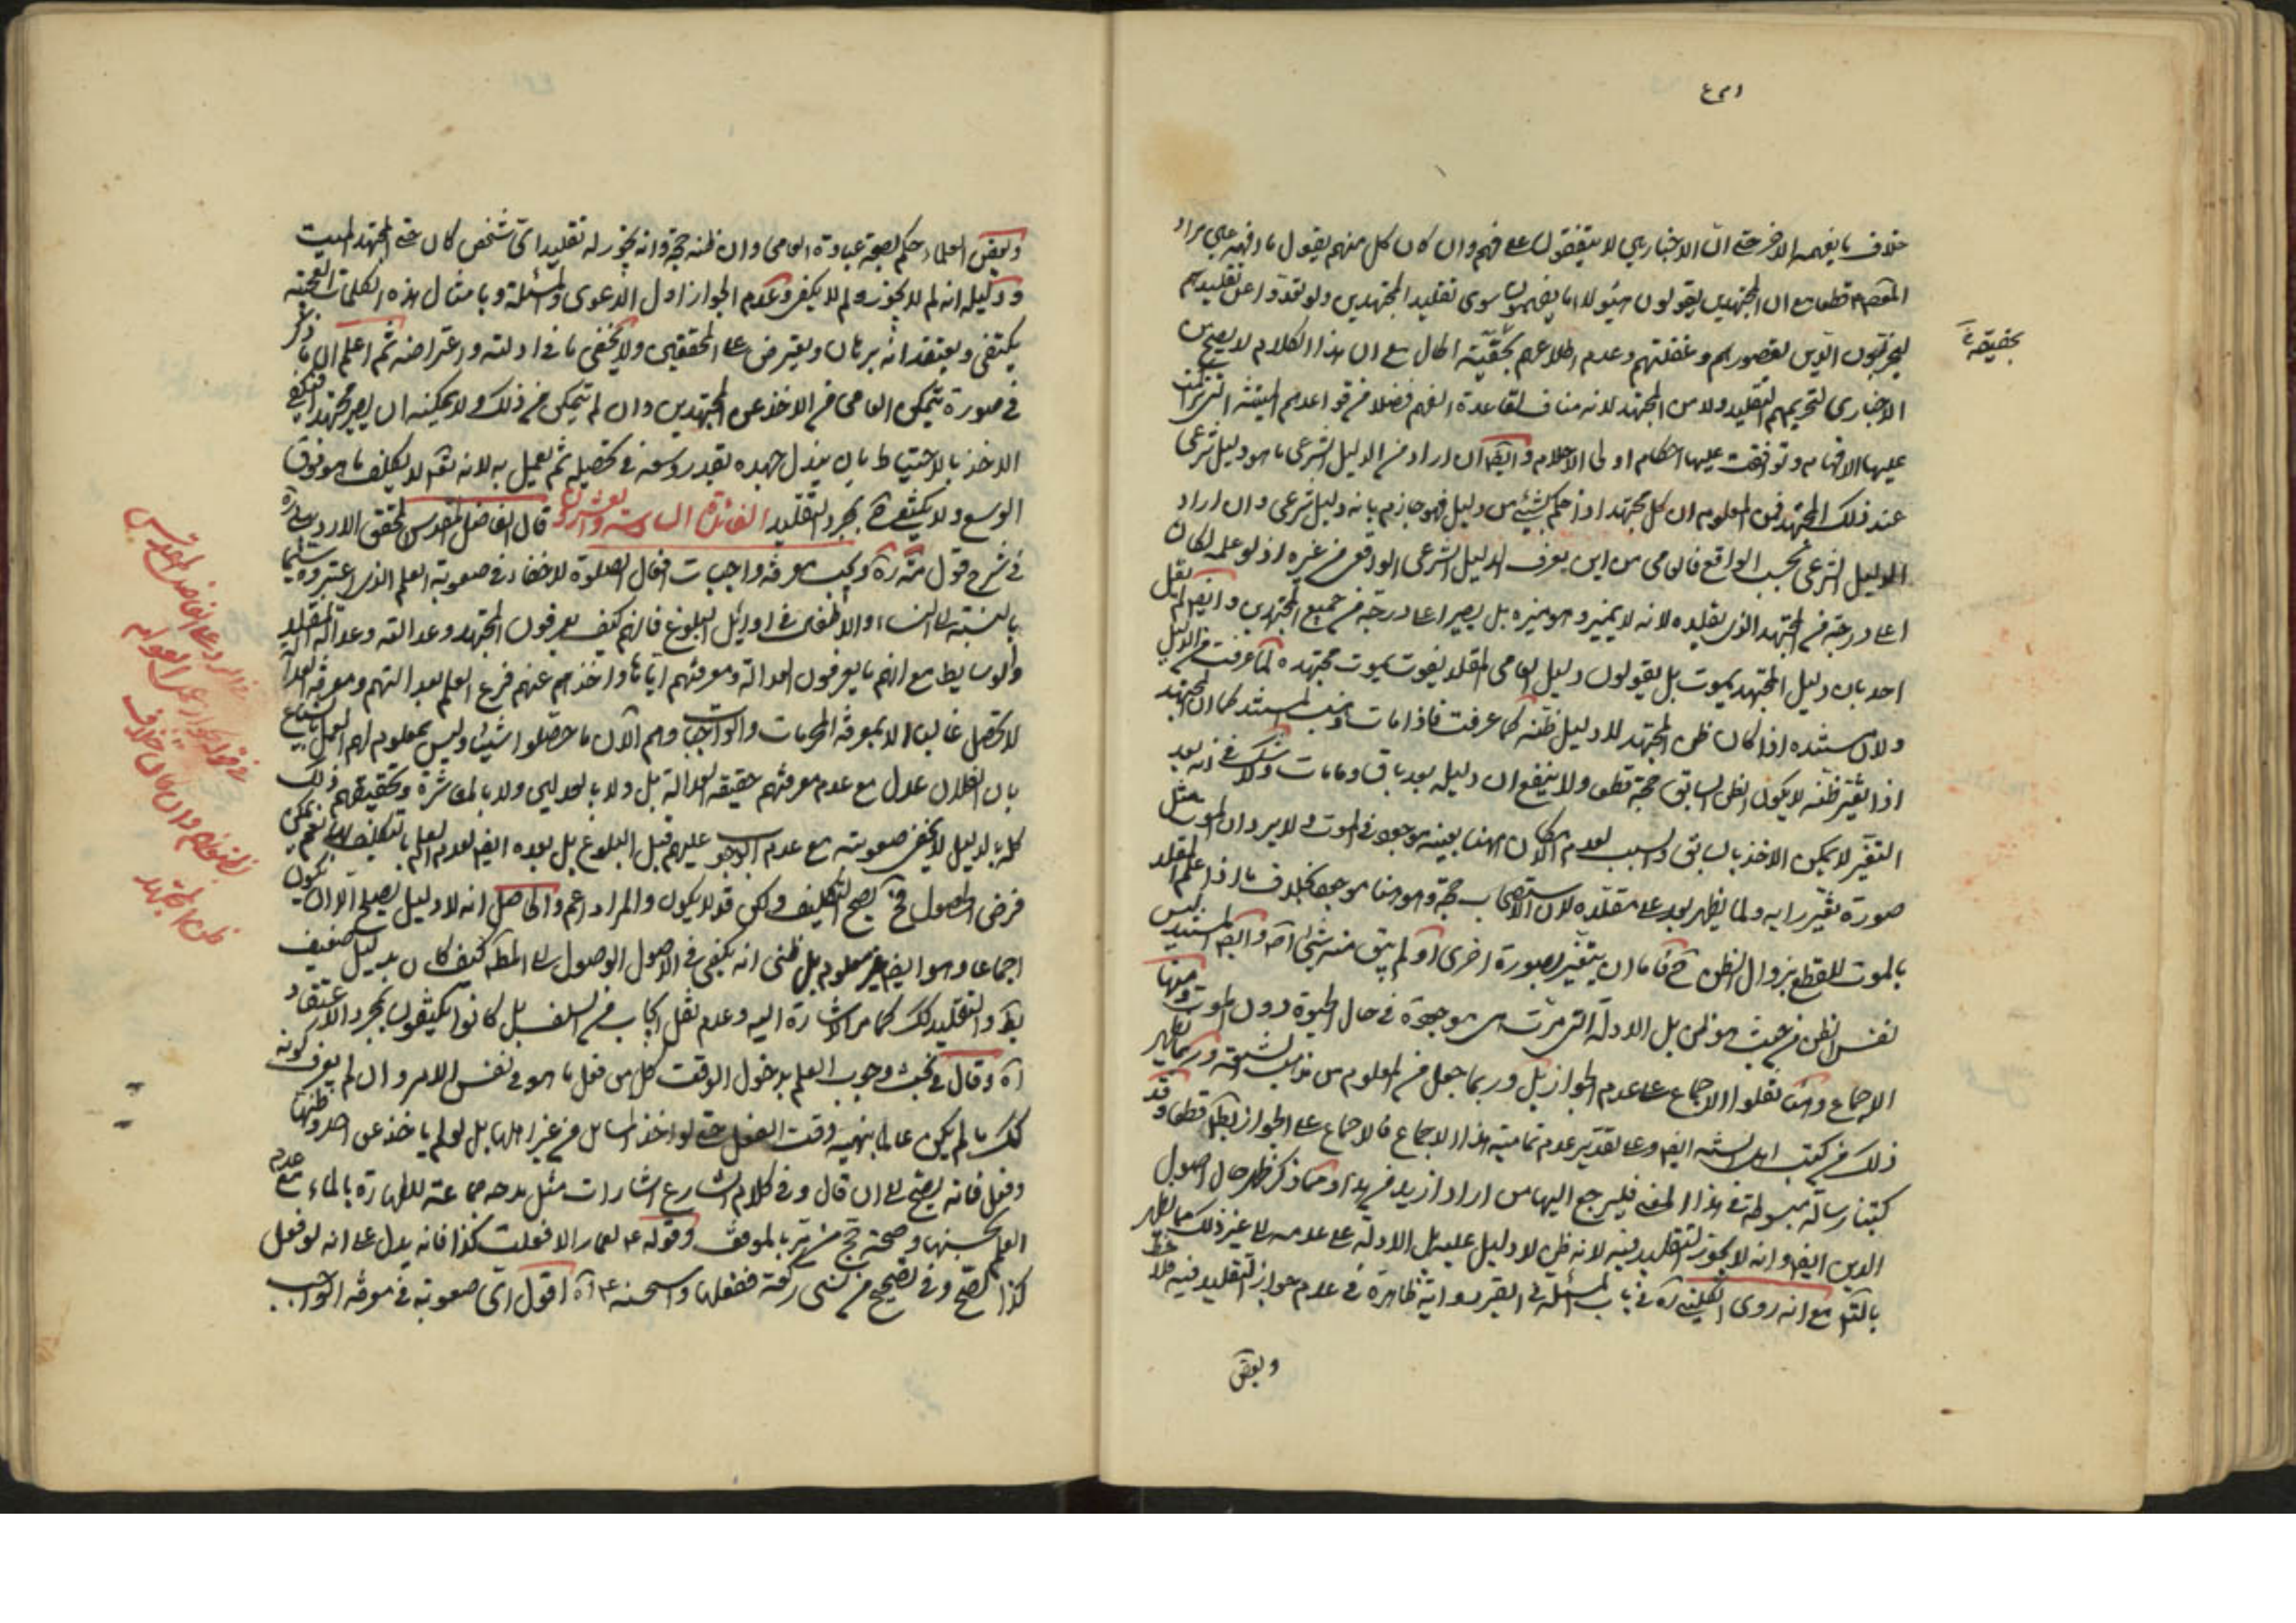 خلاف ما يفهمه الاخر حتى ان الاخباريين لا يتفقون على فهم وان كان كل منهم يقول ما افهمه هي مراد
المعصوم قطعا مع ان المجتهدين يقولون هؤلاء ما يفهمون سوى تقليد المجتهدين ولو تعدوا عن تقليدهم
ليخربون الدين لقصورهم وغفلتهم وعدم اطلاعهم بحقيقة الحال مع ان هذا الكلام لا يصح من
بحقيقة
الاخباري لتحريمهم التقليد ولا من المجتهد لانه مناف لقاعدة الفهم فضلا من قواعدهم المتقنة التي
عليها الافهام وتوافقت عليها احكام اولى الاحلام وايضا ان اراد من الدليل الشرعى ما هو دليل شرعى
عند ذلك المجتهد فمن المعلوم ان كل مجتهد اذا حكم بشيء من دليل فهو جازم بانه دليل شرعى وان اراد
الدليل الشرعى بحسب الواقع فالعامى من اين يعرف الدليل الشرعى الواقعى من غيره اذ لو علمه لكان
اعلا درجة من المجتهد الذى يقلده لانه لا يميز وهو ميزه بل يصير اعلا درجة من جميع المجتهدين وايضا لم يقل
احد بان دليل المجتهد يموت بل يقولون دليل العامى المقلد يفوت بموت مجتهده لما عرفت من الدليل
ولان مستنده اذا كان ظن المجتهد لا دليل ظنه كما عرفت فاذا مات ذهب المستند كما ان المجتهد
اذا تغير ظنه لا يكون الظن السابق حجة قطعا ولا ينفع ان دليله بعد باق وما مات ولا شك فى انه بعد
التغير لا يمكن الاخذ بالسابق والسبب لعدم الامكان هنا بعينه موجود فى الموت ولا يرد ان الموت مثل
صورة تغير رايه ولما يظهر بعد على مقلده لان الاستصحاب حجة وهو هنا موجود بخلاف ما اذا علم المقلد
بالموت للقطع بزوال الظن فاما ان يتغير بصورة اخرى او لم يبق منه شئ اصلا وايضا المستند ليس
نفس الظن من حيث هو ظن بل الادلة التى مرت هى موجودة فى حال الحيوة دون الموت ومنها
الاجماع وهنا نقلوا الاجماع على عدم الجواز بل وربما جعل من المعلوم من مذهب الشيعة وربما يظهر
ذلك من كتب اهل السنة ايضا وعلى تقدير عدم تمامية هذا الاجماع فالاجماع على الجواز بط قطعا وقد
كتبنا رسالة مبسوطة فى هذا المعنى فليرجع اليها من اراد ازيد من هذا ومما ذكر ظهر حال اصول
الدين ايضا وانه لا يجوز التقليد فيه لانه ظن لا دليل عليه بل الادلة على عدمه الى غير ذلك مما يظهر
بالتامل مع انه روى الكلينى ره فى باب المسئلة فى القبر رواية ظاهرة فى عدم جواز التقليد فيه فلاحظ
وبعض
وبعض العلماء حكم بصحة عبادة العامى وان ظنه حجة وانه يجوز له تقليد اى شخص كان حتى المجتهد الميت
ودليله انه لم لا يجوز ولم لا يكفى وعدم الجواز اول الدعوى والمسئلة وبامثال هذه الكلمات
يكتفى ويعتقد انه برهان ويعترض على المحققين ولا يخفى ما فى ادلته واعتراضه ثم اعلم ان ما ذكر
فى صورة يتمكن العامى من الاخذ عن المجتهدين وان لم يتمكن من ذلك ولا يمكنه ان يصير مجتهدا
الاخذ بالاحتياط بان يبذل جهده بقدر وسعه فى تحصيله ثم يعمل به لانه تعالى لا يكلف ما هو فوق
الوسع ولا يكتفى بمجرد التقليد الفائدة السادسة والعشرون قال الفاضل المقدس المحقق الاردبيلى ره
فى شرح قول ويجب معرفة واجبات افعال الصلوة لا خفاء فى صعوبة العلم الذى اعتبروه سيما
بالنسبة الى النساء والاطفال فى اوايل البلوغ فانهم كيف يعرفون المجتهد وعدالته وعدالة المقلد
والوسايط مع انهم ما يعرفون العدالة ومعرفتهم اياها واخذهم عنهم فرع العلم بعدالتهم ومعرفة العدالة
لا تحصل غالبا الا بمعرفة المحرمات والواجبات وهم الان ما حصلوا شيئا وليس بمعلوم لهم العمل بالشياع
بان الفلان عدل مع عدم معرفتهم حقيقة العدالة بل ولا بالعدلين ولا بالمعاشرة وتحقيقهم ذلك
كله بالدليل لا يخفى صعوبته مع عدم الوجوب عليهم قبل البلوغ بل بعده ايضا لعدم العلم بالتكليف نعم يمكن
فرض الحصول فح يصح التكليف ولكن قد لا يكون والمراد اعم والحاصل انه لا دليل يصلح الا ان يكون
اجماعا وهو ايضا غير معلوم بل ظنى انه يكفى فى الاصول الوصول الى المط كيف كان بدليل ضعيف
بط والتقليد كك كما مر الاشارة اليه وعدم نقل ايجاب من السلف بل كانوا يكتفون بمجرد الاعتقاد
اه وقال فى بحث وجوب العلم بدخول الوقت كل من فعل ما هو فى نفس الامر وان لم يعرف كونه
كك ما لم يكن عالما بنهيه وقت الفعل حتى لو اخذ المسائل من غير اهلها بل لو لم ياخذ عن احد وظنها
وفعل فانه يصح الى ان قال وفى كلام الشارع اشارات مثل مدحه جماعة للطهارة بالماء مع عدم
العلم بحسنها وصحة حج من مر بالموقف وقوله ع لعمار الا فعلت كذا فانه يدل على انه لو فعل
كذا لصح وفى الصحيح من نسى ركعة ففعلها واستحسنه ع اه اقول اى صعوبة فى معرفة الواجب